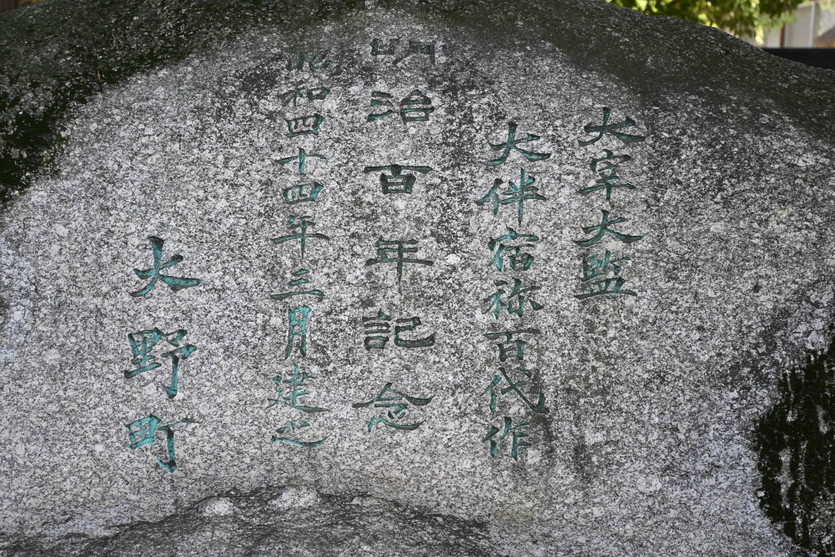 大宰大監
大伴宿祢百代作
明治百年記念
昭和四十四年三月建之
大野町